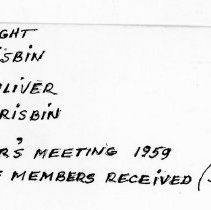 GHT
ISBIN
OLIVER
RISBIN
R'S MEETING 1959
F MEMBERS RECEIVED (